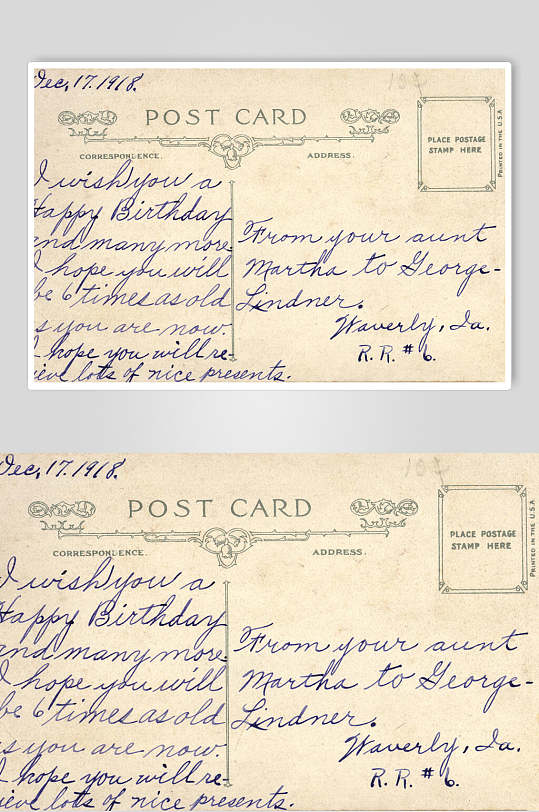 Dec, 17. 1918.
10¢
POST CARD
CORRESPONDENCE.
ADDRESS.
PLACE POSTAGE
STAMP HERE
PRINTED IN THE U.S.A
I wish you a
Happy Birthday
and many more.
I hope you will
be 6 times as old
as you are now.
I hope you will re-
ieve lots of nice presents.
From your aunt
Martha to George-
Lindner.
Waverly, Ia.
R. R. # 6.
Dec, 17. 1918.
10¢
POST CARD
CORRESPONDENCE.
ADDRESS.
PLACE POSTAGE
STAMP HERE
PRINTED IN THE U.S.A
I wish you a
Happy Birthday
and many more.
I hope you will
be 6 times as old
as you are now.
I hope you will re-
ieve lots of nice presents.
From your aunt
Martha to George-
Lindner.
Waverly, Ia.
R. R. # 6.